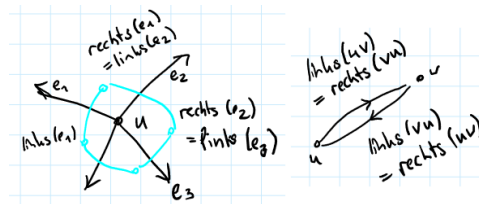 rechts(e₁)
=links(e₂)
e₁
e₂
links(e₁)
u
rechts(e₂)
=links(e₃)
e₃
links(uv)
= rechts(vu)
v
u
links(vu)
= rechts(uv)